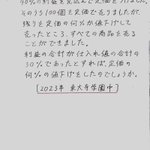 40%の利益を見込んで定価をつけました。
そのうち100個を定価で売りましたが、
残りを定価の何%か値下げして
売ったところ、すべての商品を売る
ことができました。
利益の合計が仕入れ値の合計の
30%であったとすれば、定価の
何%の値下げをしたのでしょうか。
2023年 東大寺学園中